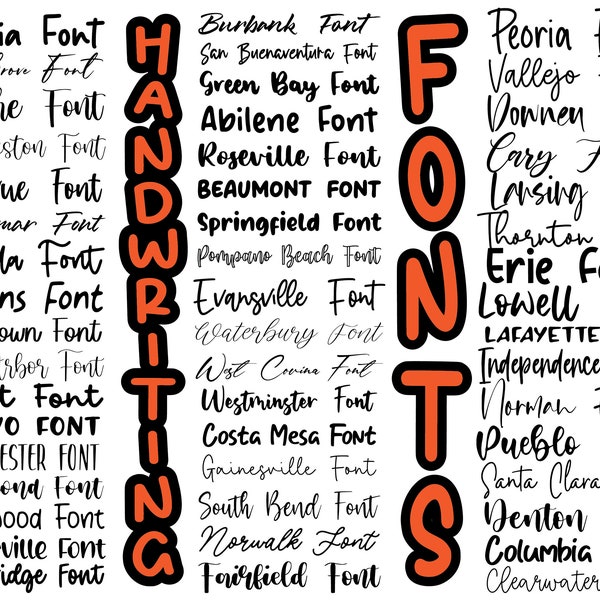 ia Font
rove Font
he Font
ston Font
ue Font
mar Font
la Font
ns Font
own Font
rbor Font
t Font
YO FONT
ESTER FONT
ond Font
ood Font
ville Font
ridge Font
HANDWRITING
Burbank Font
San Buenaventura Font
Green Bay Font
Abilene Font
Roseville Font
BEAUMONT FONT
Springfield Font
Pompano Beach Font
Evansville Font
Waterbury Font
West Covina Font
Westminster Font
Costa Mesa Font
Gainesville Font
South Bend Font
Norwalk Font
Fairfield Font
FONTS
Peoria F
Vallejo
Downey
Cary F
Lansing
Thornton
Erie Fo
Lowell
LAFAYETTE
Independence
Norman F
Pueblo
Santa Clara
Denton
Columbia
Clearwater